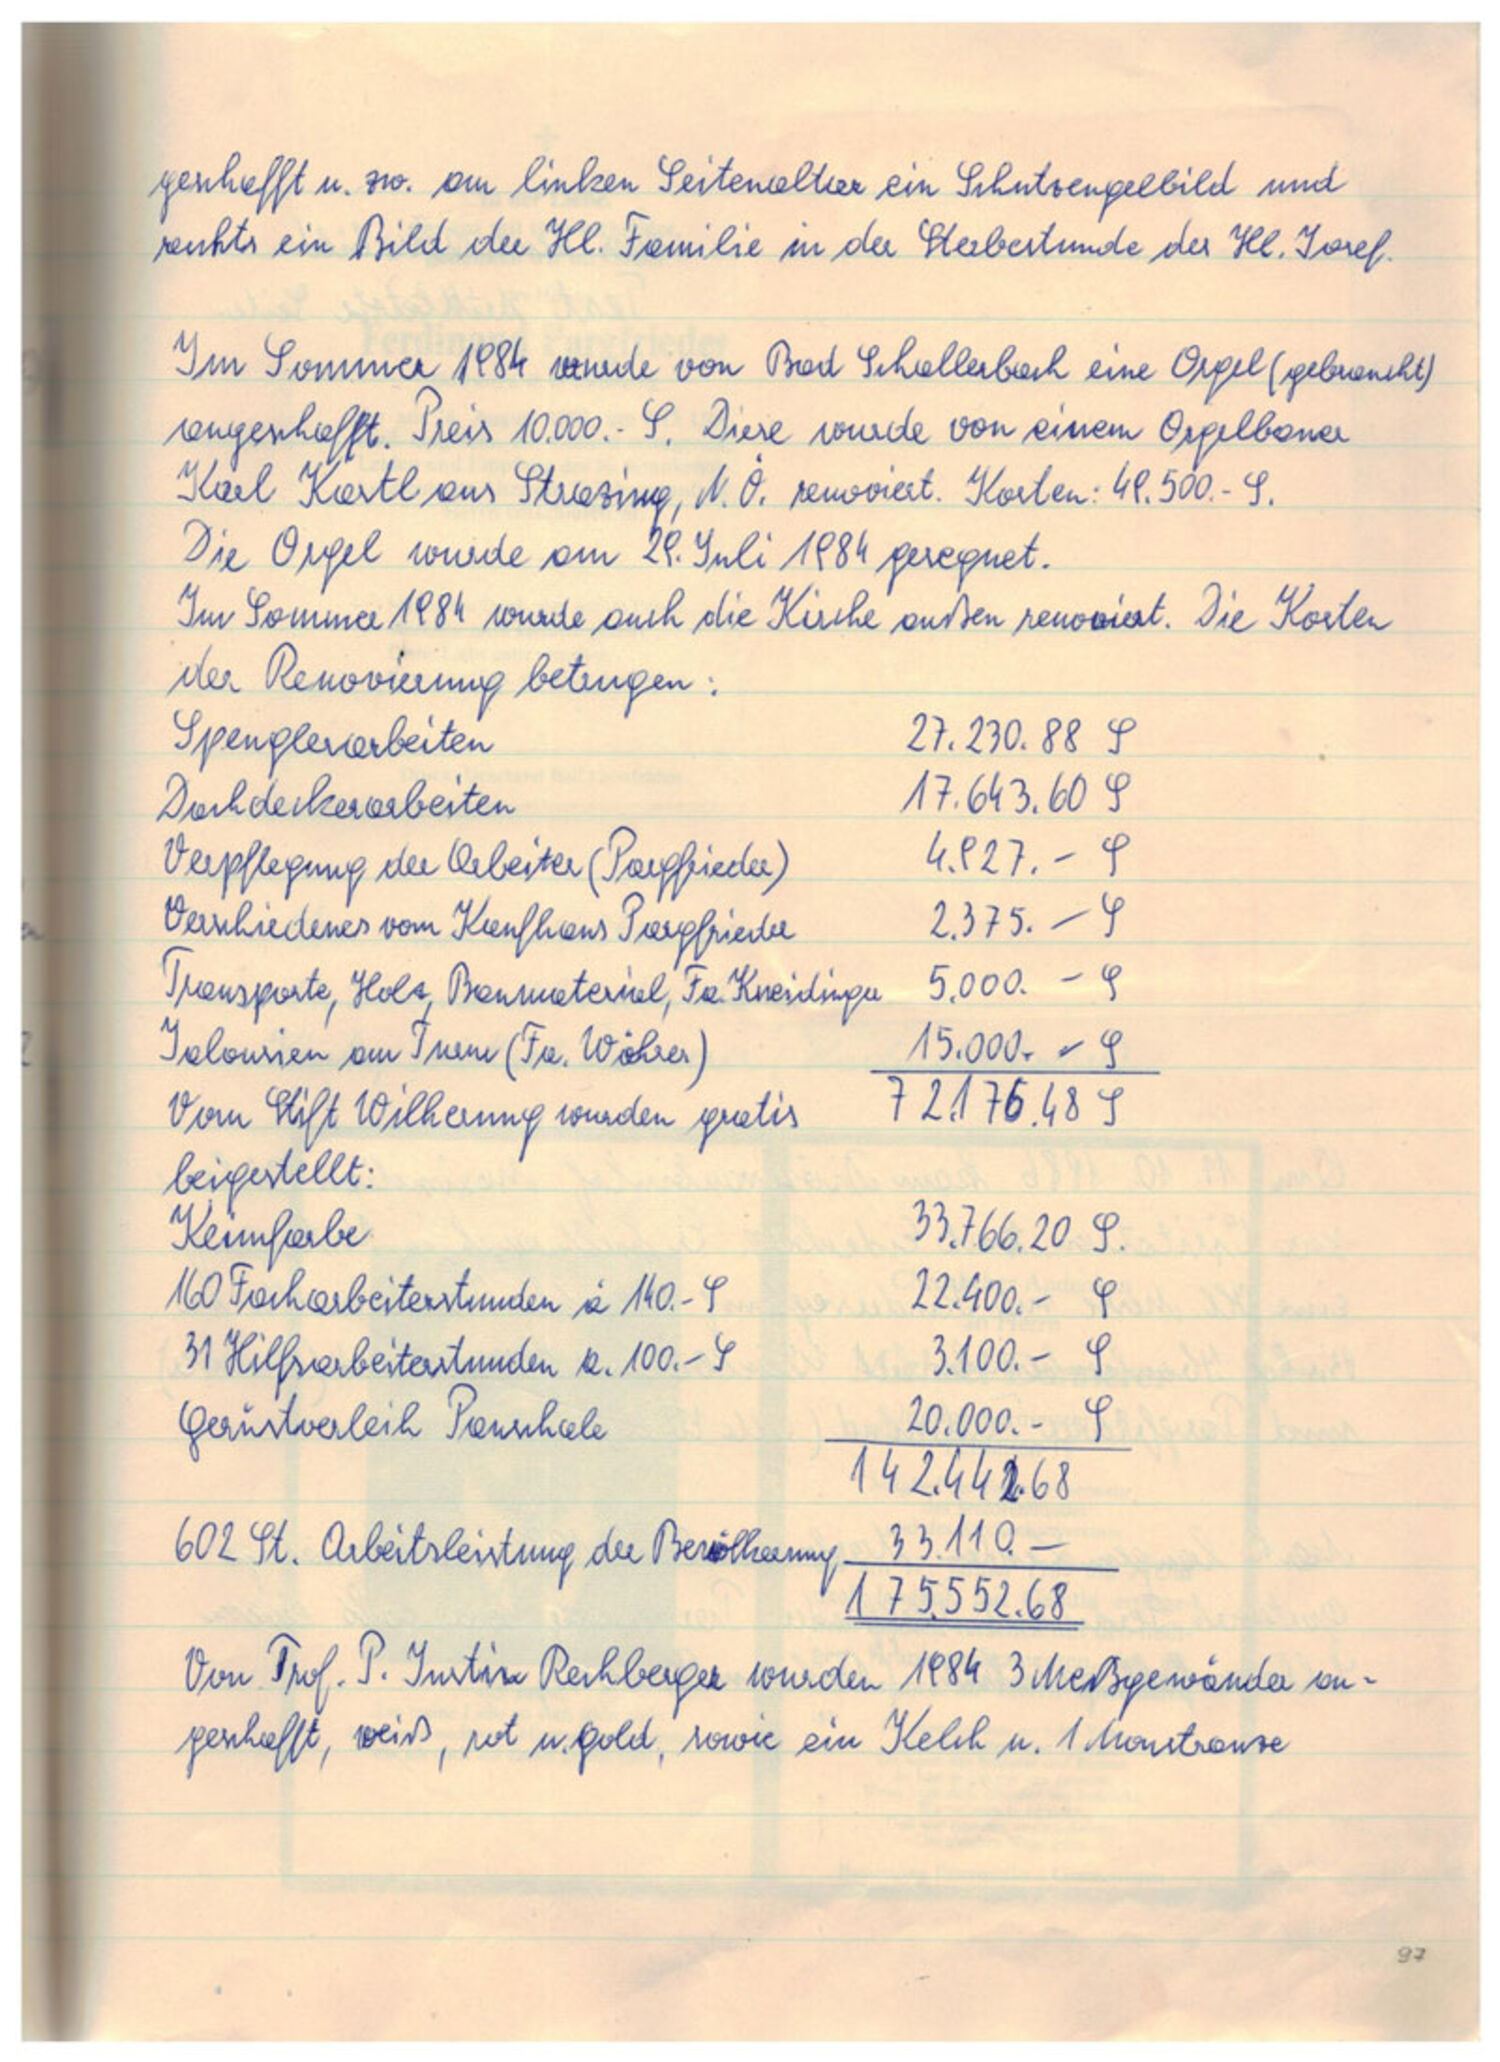 geschafft u. zw. am linken Seitenaltar ein Schutzengelbild und
rechts ein Bild der Hl. Familie in der Sterbestunde des Hl. Josef.
Im Sommer 1984 wurde von Bad Schallerbach eine Orgel (gebraucht)
angeschafft. Preis 10.000.- S. Diese wurde von einem Orgelbauer
Karl Kastl aus Strazing, N.Ö. renoviert. Kosten: 49.500.- S.
Die Orgel wurde am 29. Juli 1984 gesegnet.
Im Sommer 1984 wurde auch die Kirche außen renoviert. Die Kosten
der Renovierung betrugen:
Spenglerarbeiten 27.230.88 S
Dachdeckerarbeiten 17.643.60 S
Verpflegung der Arbeiter (Pargfrieder) 4.927.- S
Verschiedenes vom Kaufhaus Pargfrieder 2.375.- S
Transporte, Holz, Baumaterial, Fa. Kneidinger 5.000.- S
Jalousien am Turm (Fa. Wöhrer) 15.000.- S
Vom Stift Wilhering wurden gratis 72.176.48 S
beigestellt:
Keimfarbe 33.766.20 S.
160 Facharbeiterstunden á 140.- S 22.400.- S
31 Hilfsarbeiterstunden a. 100.- S 3.100.- S
Gerüstverleih Pauschale 20.000.- S
142.442.68
602 St. Arbeitsleistung der Bevölkerung 33.110.-
175.552.68
Von Prof. P. Justin Rechberger wurden 1984 3 Meßgewänder an-
geschafft, weiß, rot u. gold, sowie ein Kelch u. 1 Monstranze
97